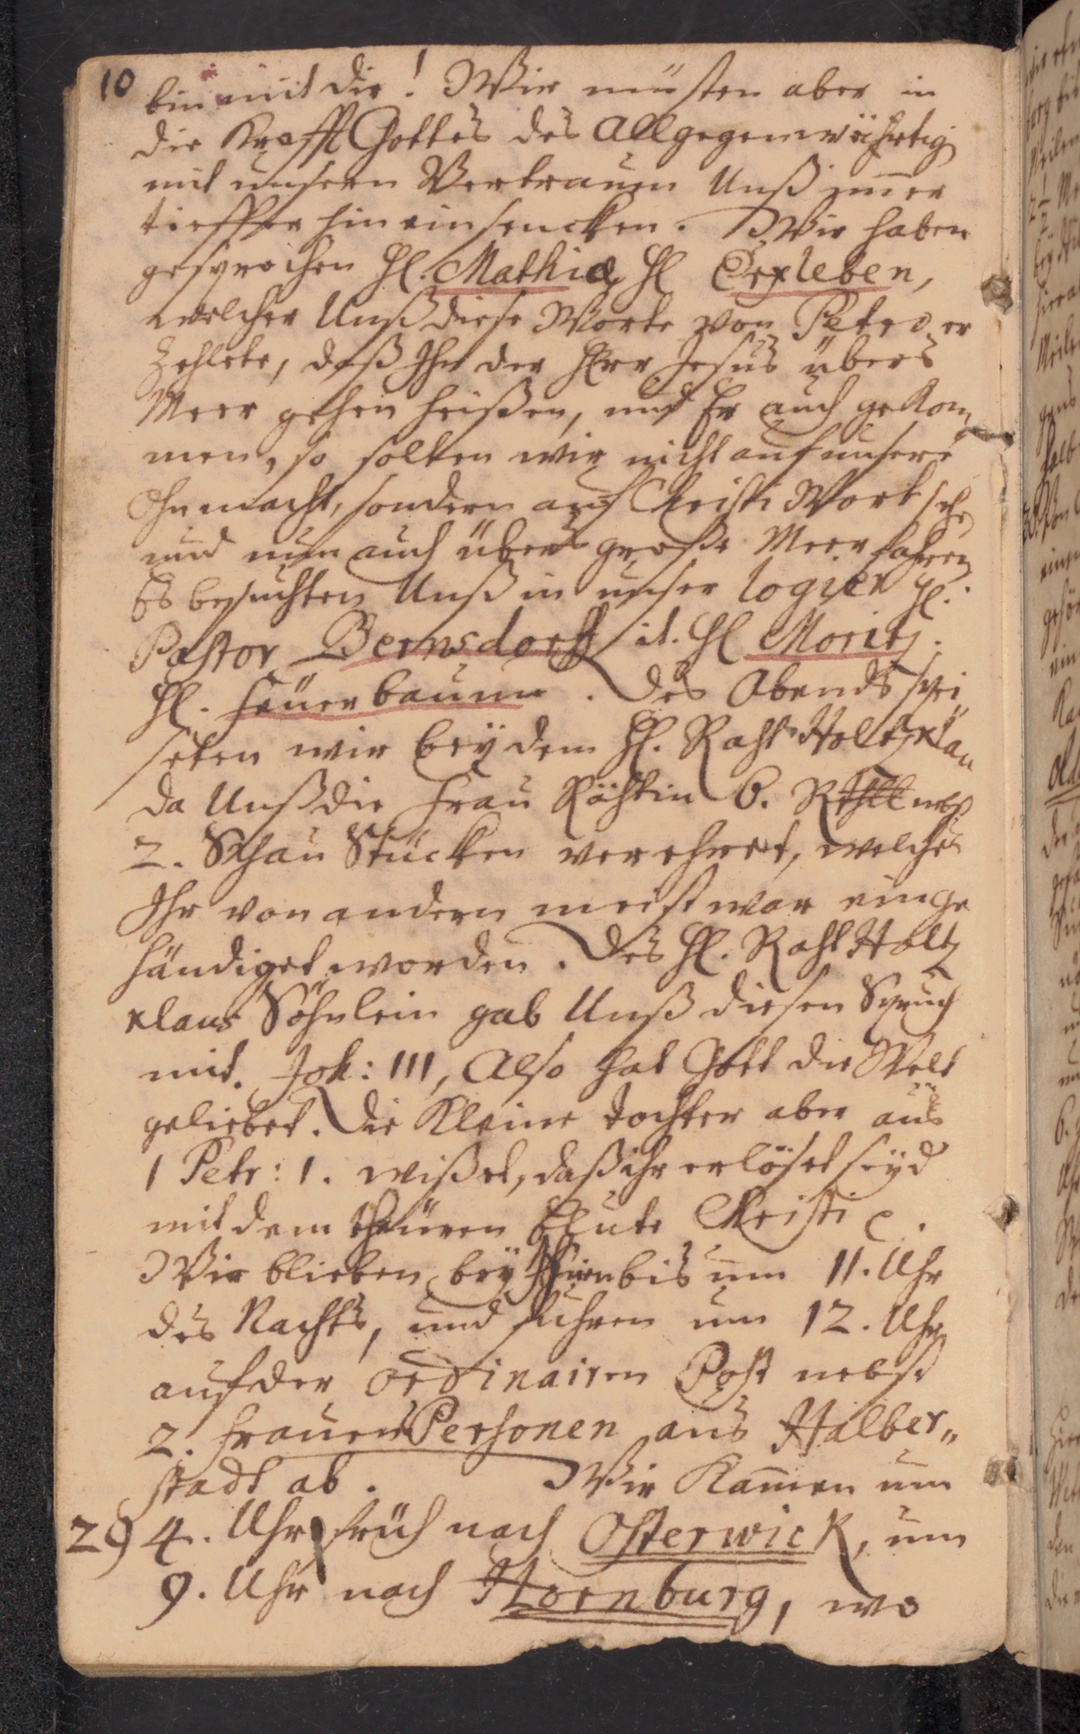 10
bin mit dir! Wir müsten aber in
die Krafft Gottes des Allgegenwärtig
mit unsern Vertrauen Unß immer
tieffer hineinsencken. Wir haben
gesprochen Hl. Mathiæ, Hl Erxleben,
welcher Unß diese Worte von Petro er
zehlete, daß Ihn der Herr Jesus übers
Meer gehen heißen, und Er auch gekom
men, so solten wir nicht auf unsere
Ohnmacht, sondern auf Christi Wort sehe
und nun auch übers große Meer fahren
Es besuchten Unß in unser logier Hl.
Pastor Bernsdorff it. Hl Moritz.
Hl. Feüerbaum. Des Abends spei
seten wir beÿ dem Hl. Raht Holtzklau
da Unß die Frau Räthin 6. Rthll nebst
2. Schau Stücken verehret, welches
Ihr von andern meist war einge
händiget worden. Des Hl. Raht Holtz
klaus Söhnlein gab Unß diesen Spruch
mit. Joh: III, Also hat Gott die Welt
geliebet. Die Kleine tochter aber aus
1 Petr: 1. wißet, daß ihr erlöset seÿd
mit dem theüren Blute Christi
Wir blieben beÿ Ihnen bis um 11. Uhr
des Nachts, und fuhren um 12. Uhr
auf der ordinairen Post nebst
2. Frauens Personen aus Halber„
stadt ab. Wir kamen um
29 4. Uhr früh nach Osterwick, um
9. Uhr nach Hornburg, wo